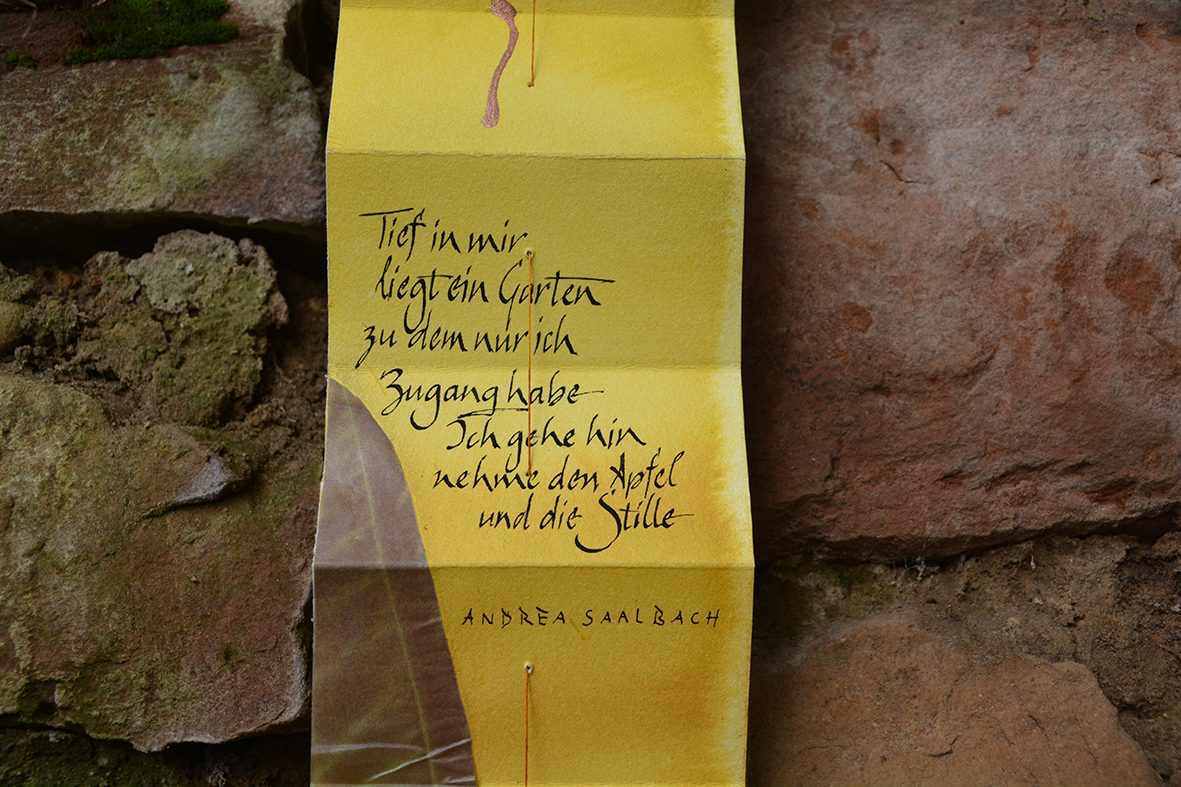 Tief in mir
liegt ein Garten
zu dem nur ich
Zugang habe
Ich gehe hin
nehme den Apfel
und die Stille
ANDREA SAALBACH